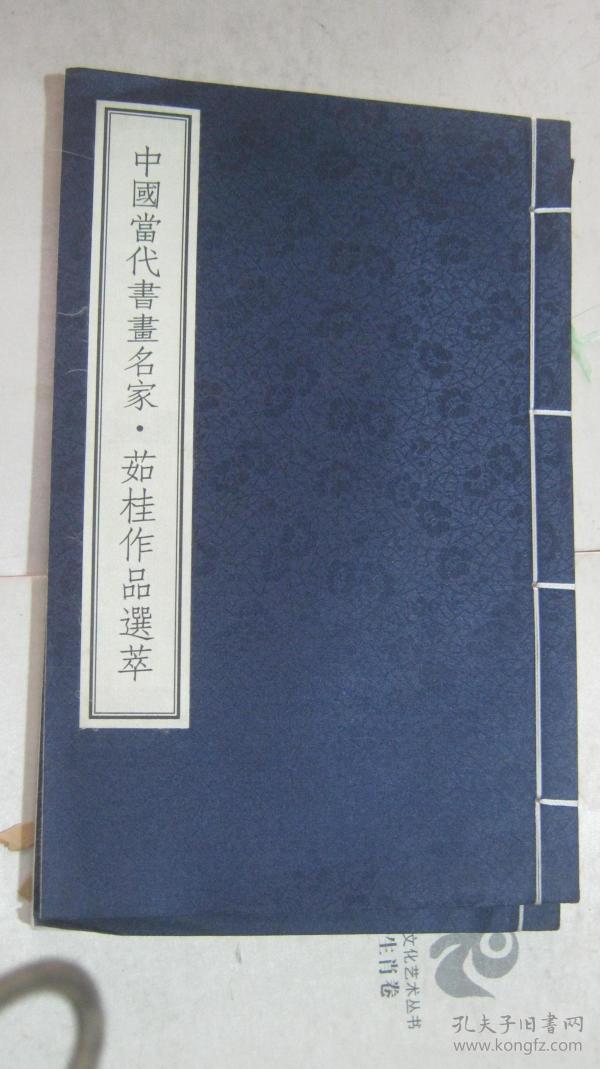 中國當代書畫名家·茹桂作品選萃
文化艺术丛书
生肖卷
孔夫子旧書网
www.kongfz.com